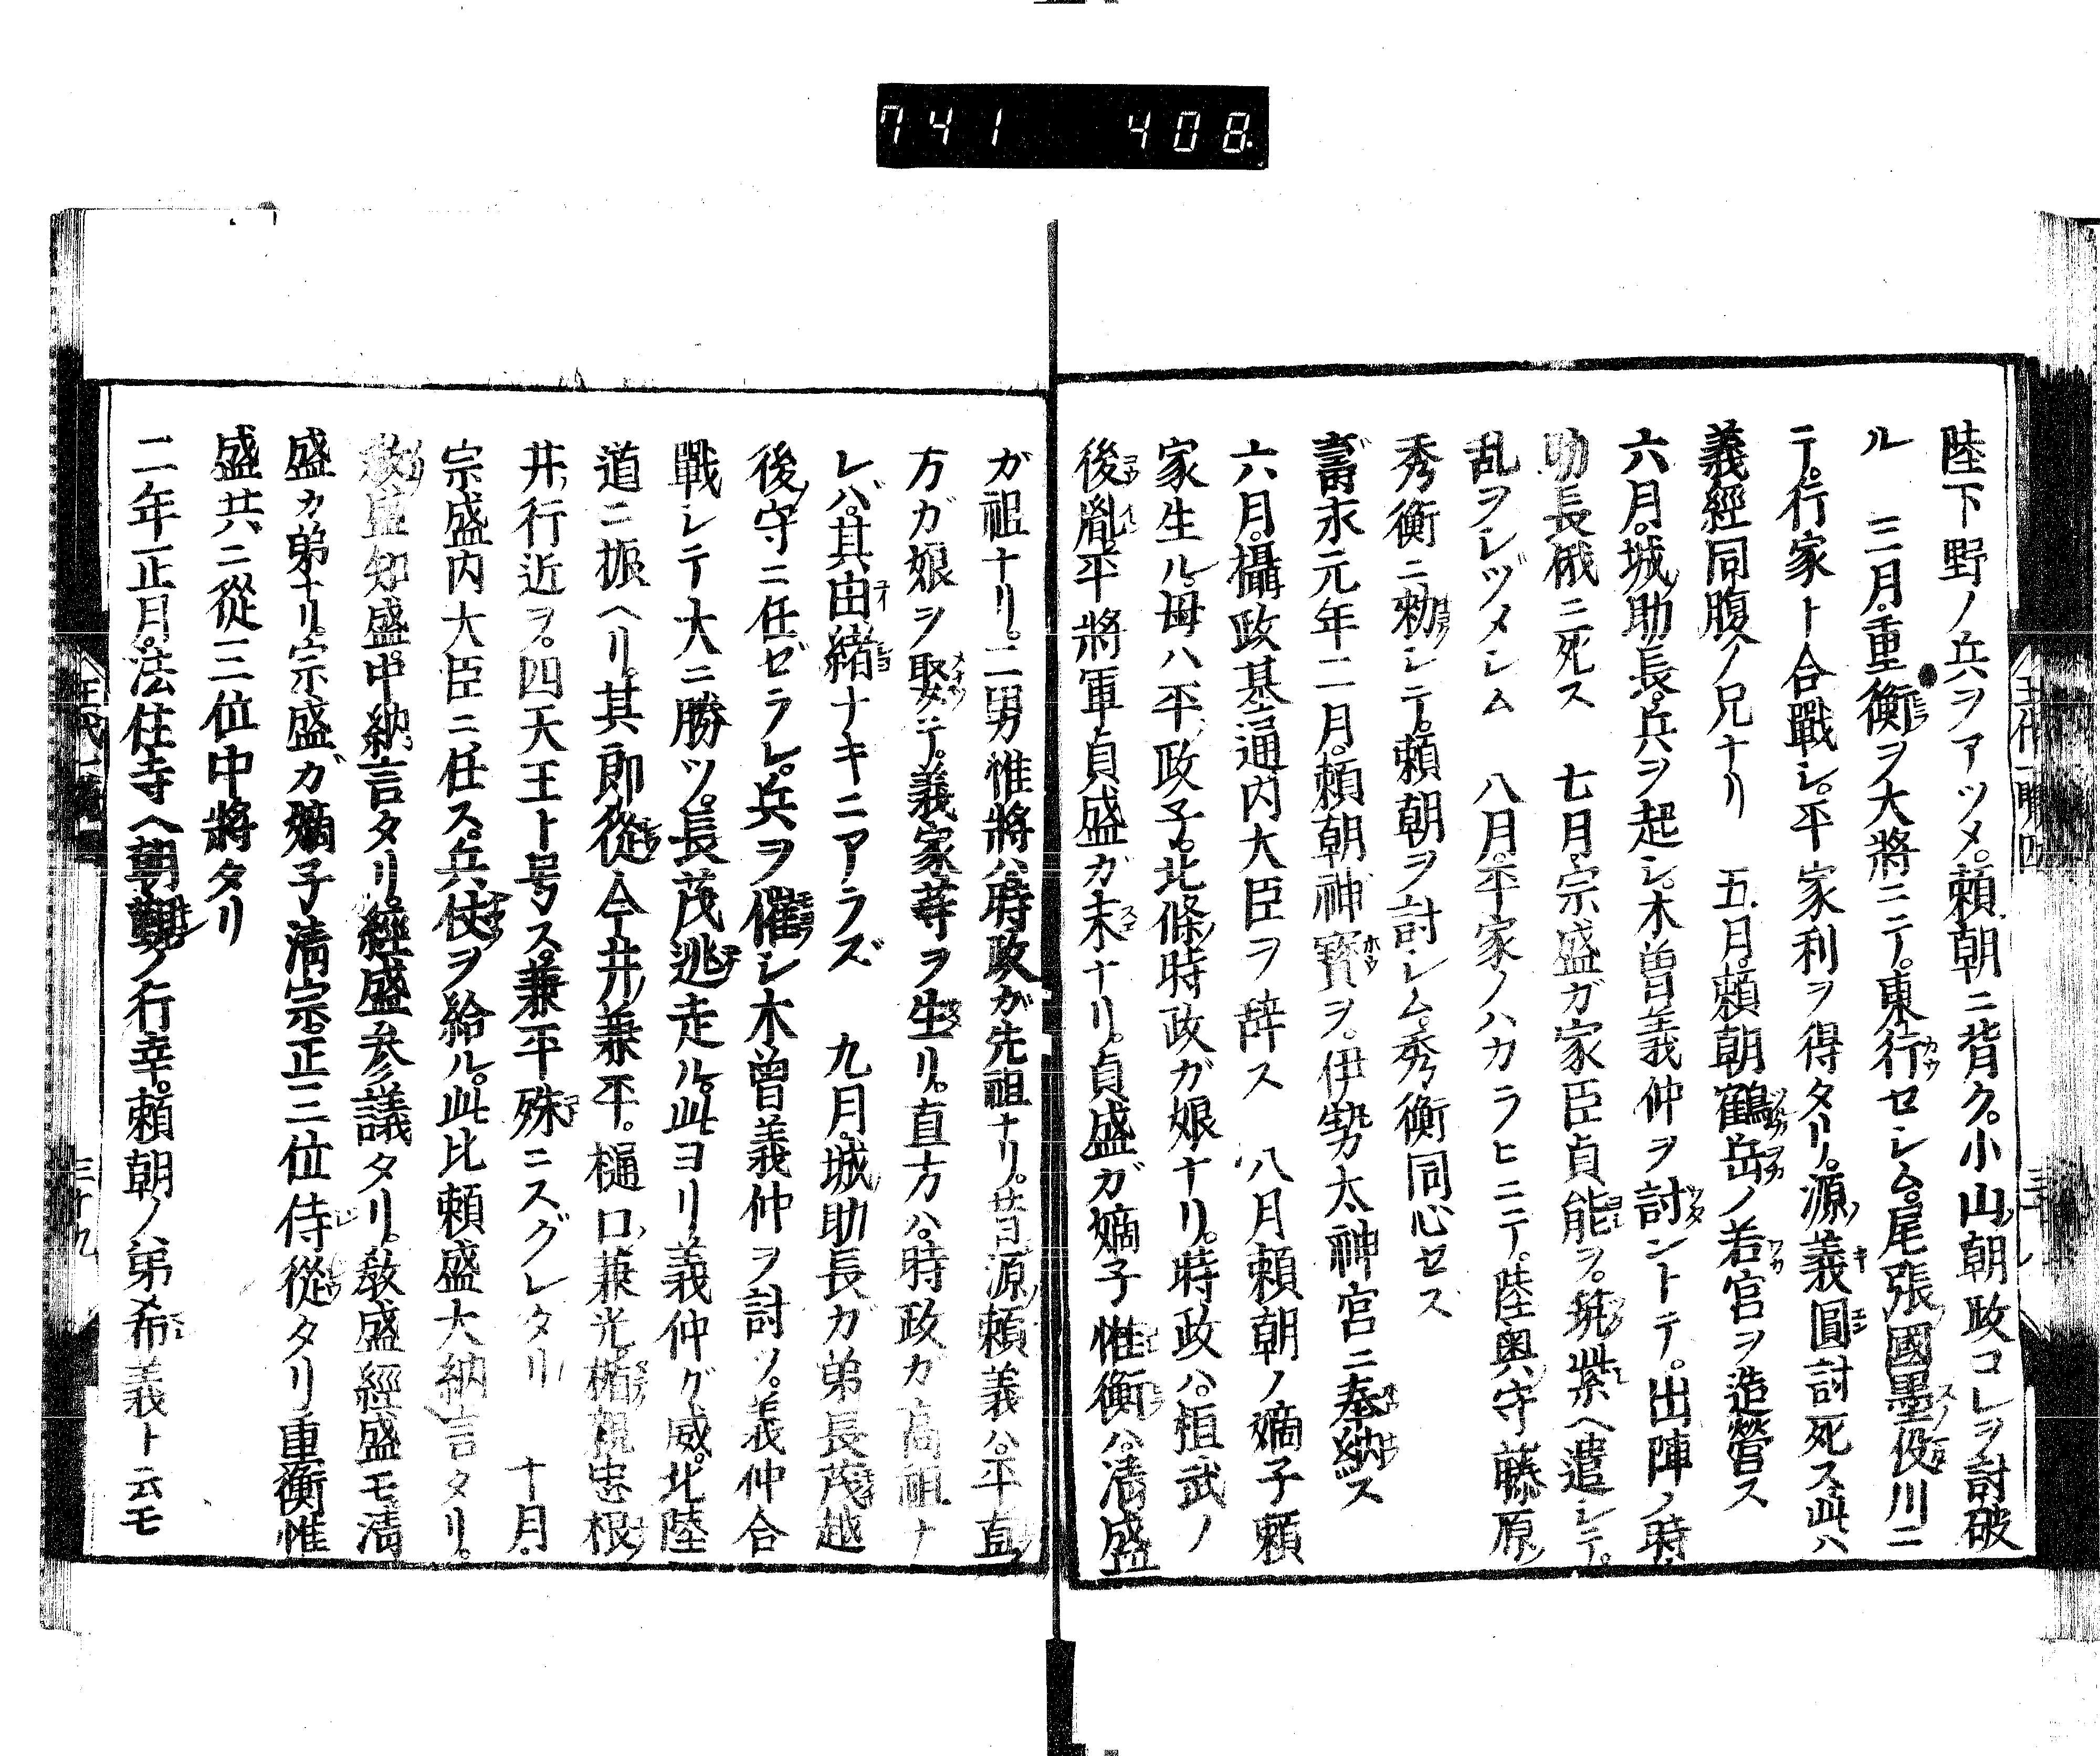 741 408
陸下野ノ兵ヲアツメ。頼朝ニ背ク。小山朝政コレヲ討破
ル 三月。重衡ヲ大將ニテ。東行セシム。尾張國墨俣川ニ
テ。行家ト合戰シ。平家利ヲ得タリ。源義圓討死ス。此ハ
義經同腹ノ兄ナリ 五月。頼朝鶴岳ノ若宮ヲ造營ス
六月。城助長。兵ヲ起シ。木曽義仲ヲ討ントテ。出陣ノ時。
助長俄ニ死ス 七月。宗盛ガ家臣貞能ヲ。筑紫ヘ遣シテ。
乱ヲシヅメシム 八月。平家ノハカラヒニテ。陸奥守藤原
秀衡ニ勅シテ。頼朝ヲ討シム。秀衡同心セズ
壽永元年二月。頼朝神寳ヲ。伊勢太神宮ニ奉納ス
六月。攝政基通内大臣ヲ辞ス 八月頼朝ノ嫡子頼
家生ル。母ハ平政子。北條時政ガ娘ナリ。時政ハ。桓武ノ
後胤。平將軍貞盛ガ末ナリ。貞盛ガ嫡子惟衡ハ。清盛
ガ祖ナリ。二男惟將ハ。時政ガ先祖ナリ。昔源頼義ハ。平直
方ガ娘ヲ娶テ。義家等ヲ生リ。直方ハ。時政ガ高祖ナ
レバ。其由緒ナキニアラズ 九月。城助長ガ弟長茂越
後守ニ任ゼラレ。兵ヲ催シ木曽義仲ヲ討ツ。義仲合
戰シテ大ニ勝ツ。長茂逃走ル。此ヨリ義仲ガ威。北陸
道ニ振ヘリ。其郎從今井兼平。樋口兼光楯親忠根
井行近ヲ。四天王ト号ス。兼平殊ニスグレタリ 十月。
宗盛内大臣ニ任ス。兵仗ヲ給ル。此比頼盛大納言タリ。
教盛知盛。中納言タリ。經盛参議タリ。教盛經盛モ清
盛カ弟ナリ。宗盛ガ嫡子清宗。正三位侍從タリ重衡惟
盛共ニ從三位中將タリ
二年正月。法住寺ヘ朝覲ノ行幸。頼朝ノ弟希義ト云モ
三十九